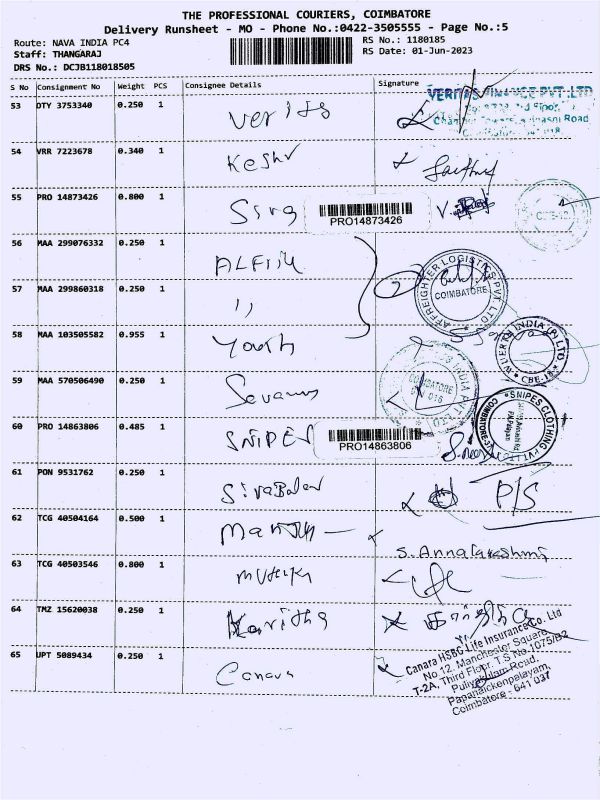 THE PROFESSIONAL COURIERS, COIMBATORE
Delivery Runsheet - MO - Phone No.:0422-3505555 - Page No.:5
Route: NAVA INDIA PC4
RS No.: 1180185
Staff: THANGARAJ
RS Date: 01-Jun-2023
DRS No.: DCJB118018505
S No Consignment No Weight PCS Consignee Details Signature
VERITAS FINANCE PVT LTD
53 DTY 3753340 0.250 1 Veritas
Road
54 VRR 7223678 0.340 1 Keshv
55 PRO 14873426 0.800 1 Siva
PRO14873426
56 MAA 299076332 0.250 1
AFFREIGHTER LOGISTICS PVT. LTD
COIMBATORE
57 MAA 299860318 0.250 1 ''
58 MAA 103505582 0.955 1 Youth
INDIA (P) LTD.
CBE-18
59 MAA 570506490 0.250 1
COIMBATORE
SNIPES CLOTHING PVT LTD
COIMBATORE
60 PRO 14863806 0.485 1 SNIPES
PRO14863806
61 PON 9531762 0.250 1 Sivabalan
P/S
62 TCG 40504164 0.500 1
S. Annalakshmi
63 TCG 40503546 0.800 1
64 TMZ 15620038 0.250 1 Kavitha
65 UPT 5089434 0.250 1 Canara
Canara HSBC Life Insurance Co. Ltd
No 12, Manchester Square,
T-2A, Third Floor, T.S No.1075/B2
Puliyakulam Road,
Papanaickenpalayam,
Coimbatore - 641 037